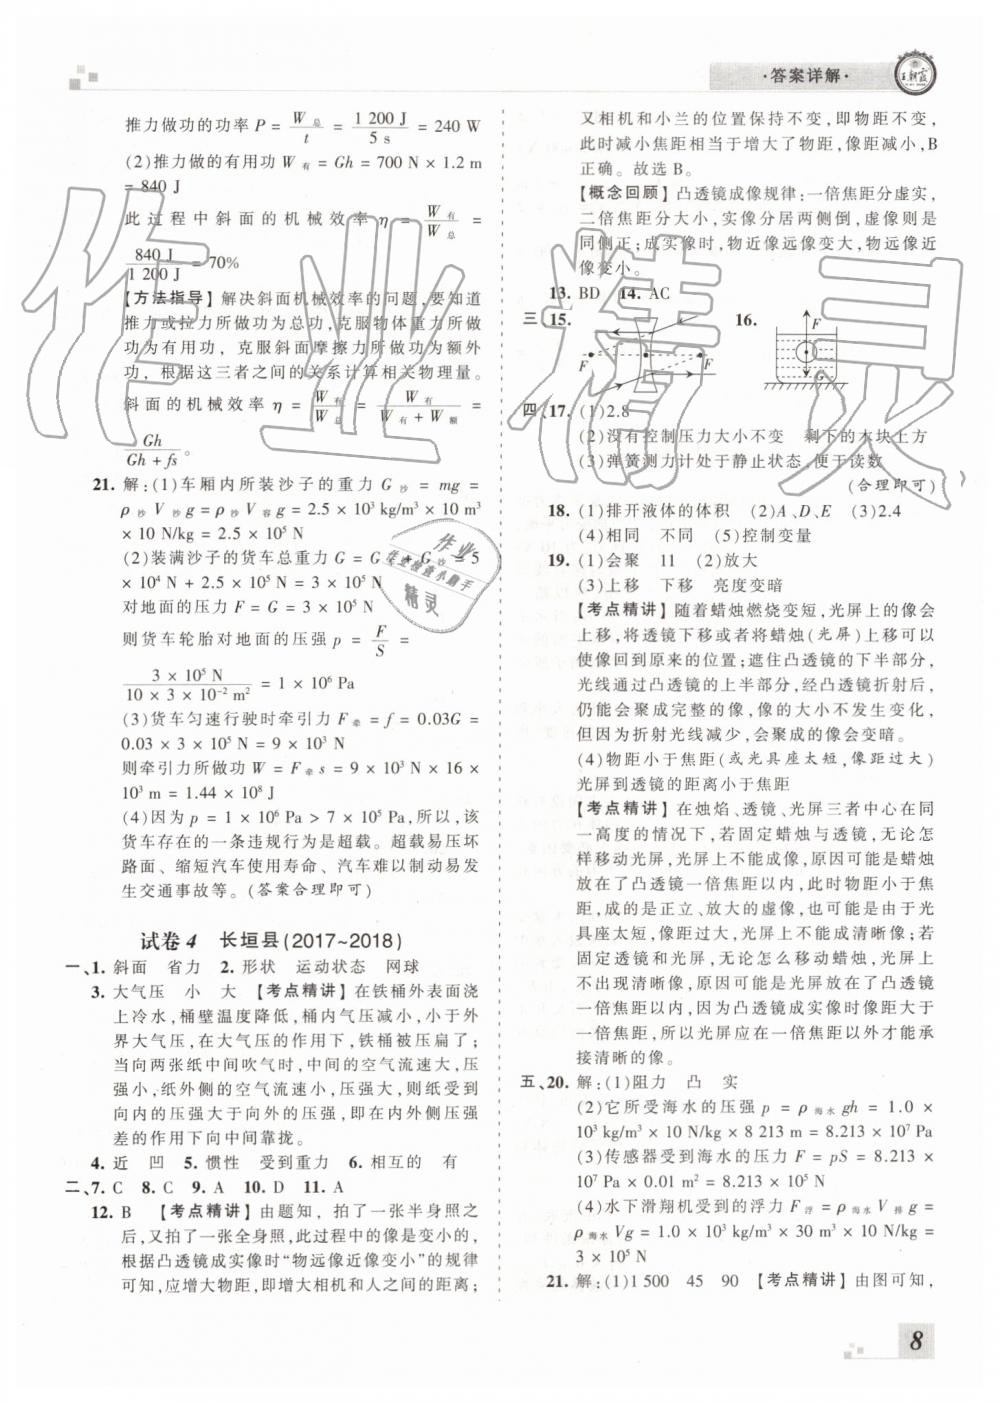 ·答案详解·
王朝霞
推力做功的功率 P = W总/t = 1 200 J/5 s = 240 W
(2)推力做的有用功 W有 = Gh = 700 N × 1.2 m
= 840 J
此过程中斜面的机械效率 η = W有/W总 =
840 J/1 200 J = 70%
【方法指导】解决斜面机械效率的问题,要知道
推力或拉力所做功为总功,克服物体重力所做
功为有用功,克服斜面摩擦力所做功为额外
功,根据这三者之间的关系计算相关物理量。
斜面的机械效率 η = W有/W总 = W有/(W有 + W额) =
Gh/(Gh + fs)。
21. 解:(1)车厢内所装沙子的重力 G沙 = mg =
ρ沙 V沙 g = ρ沙 V容 g = 2.5 × 10³ kg/m³ × 10 m³
× 10 N/kg = 2.5 × 10⁵ N
(2)装满沙子的货车总重力 G = G = 5
× 10⁴ N + 2.5 × 10⁵ N = 3 × 10⁵ N
对地面的压力 F = G = 3 × 10⁵ N
则货车轮胎对地面的压强 p = F/S =
3 × 10⁵ N/(10 × 3 × 10⁻² m²) = 1 × 10⁶ Pa
(3)货车匀速行驶时牵引力 F牵 = f = 0.03G =
0.03 × 3 × 10⁵ N = 9 × 10³ N
则牵引力所做功 W = F牵 s = 9 × 10³ N × 16 ×
10³ m = 1.44 × 10⁸ J
(4)因为 p = 1 × 10⁶ Pa > 7 × 10⁵ Pa,所以,该
货车存在的一条违规行为是超载。超载易压坏
路面、缩短汽车使用寿命、汽车难以制动易发
生交通事故等。(答案合理即可)
试卷4 长垣县(2017~2018)
一、1. 斜面 省力 2. 形状 运动状态 网球
3. 大气压 小 大 【考点精讲】在铁桶外表面浇
上冷水,桶壁温度降低,桶内气压减小,小于外
界大气压,在大气压的作用下,铁桶被压扁了;
当向两张纸中间吹气时,中间的空气流速大,压
强小,纸外侧的空气流速小,压强大,则纸受到
向内的压强大于向外的压强,即在内外侧压强
差的作用下向中间靠拢。
4. 近 凹 5. 惯性 受到重力 6. 相互的 有
二、7. C 8. C 9. A 10. D 11. A
12. B 【考点精讲】由题知,拍了一张半身照之
后,又拍了一张全身照,此过程中的像是变小的,
根据凸透镜成实像时“物远像近像变小”的规律
可知,应增大物距,即增大相机和人之间的距离;
又相机和小兰的位置保持不变,即物距不变,
此时减小焦距相当于增大了物距,像距减小,B
正确。故选 B。
【概念回顾】凸透镜成像规律:一倍焦距分虚实,
二倍焦距分大小,实像分居两侧倒,虚像则是
同侧正;成实像时,物近像远像变大,物远像近
像变小。
13. BD 14. AC
三、15. F F 16. F G
四、17. (1)2.8
(2)没有控制压力大小不变 剩下的木块上方
(3)弹簧测力计处于静止状态,便于读数
(合理即可)
18. (1)排开液体的体积 (2)A、D、E (3)2.4
(4)相同 不同 (5)控制变量
19. (1)会聚 11 (2)放大
(3)上移 下移 亮度变暗
【考点精讲】随着蜡烛燃烧变短,光屏上的像会
上移,将透镜下移或者将蜡烛(光屏)上移可以
使像回到原来的位置;遮住凸透镜的下半部分,
光线通过凸透镜的上半部分,经凸透镜折射后,
仍能会聚成完整的像,像的大小不发生变化,
但因为折射光线减少,会聚成的像会变暗。
(4)物距小于焦距(或光具座太短,像距过大)
光屏到透镜的距离小于焦距
【考点精讲】在烛焰、透镜、光屏三者中心在同
一高度的情况下,若固定蜡烛与透镜,无论怎
样移动光屏,光屏上不能成像,原因可能是蜡烛
放在了凸透镜一倍焦距以内,此时物距小于焦
距,成的是正立、放大的虚像,也可能是由于光
具座太短,像距过大,光屏不能成清晰像;若
固定透镜和光屏,无论怎么移动蜡烛,光屏上
不出现清晰像,原因可能是光屏放在了凸透镜
一倍焦距以内,因为凸透镜成实像时像距大于
一倍焦距,所以光屏应在一倍焦距以外才能承
接清晰的像。
五、20. 解:(1)阻力 凸 实
(2)它所受海水的压强 p = ρ海水 gh = 1.0 ×
10³ kg/m³ × 10 N/kg × 8 213 m = 8.213 × 10⁷ Pa
(3)传感器受到海水的压力 F = pS = 8.213 ×
10⁷ Pa × 0.01 m² = 8.213 × 10⁵ N
(4)水下滑翔机受到的浮力 F浮 = ρ海水 V排 g =
ρ海水 Vg = 1.0 × 10³ kg/m³ × 30 m³ × 10 N/kg =
3 × 10⁵ N
21. 解:(1)1 500 45 90 【考点精讲】由图可知,
8
作业精灵
作业
作业检查小助手
精灵